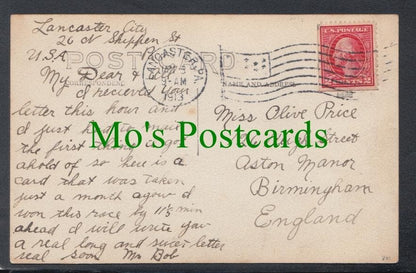 Lancaster City
26 N Shippen St
U.S.A
POSTCARD
LANCASTER, PA.
1913
U.S. POSTAGE
2 CENTS 2
My Dear
NAME AND ADDRESS
I recieved your
letter this hour and
I just had to write
the first thing I got
ahold of so here is a
card that was taken
just a month agow I
won this race by 11½ min
ahead I will write you
a real long and sweet letter
real soon Mr Bob
Miss Olive Price
Street
Aston Manor
Birmingham
England
Mo's Postcards